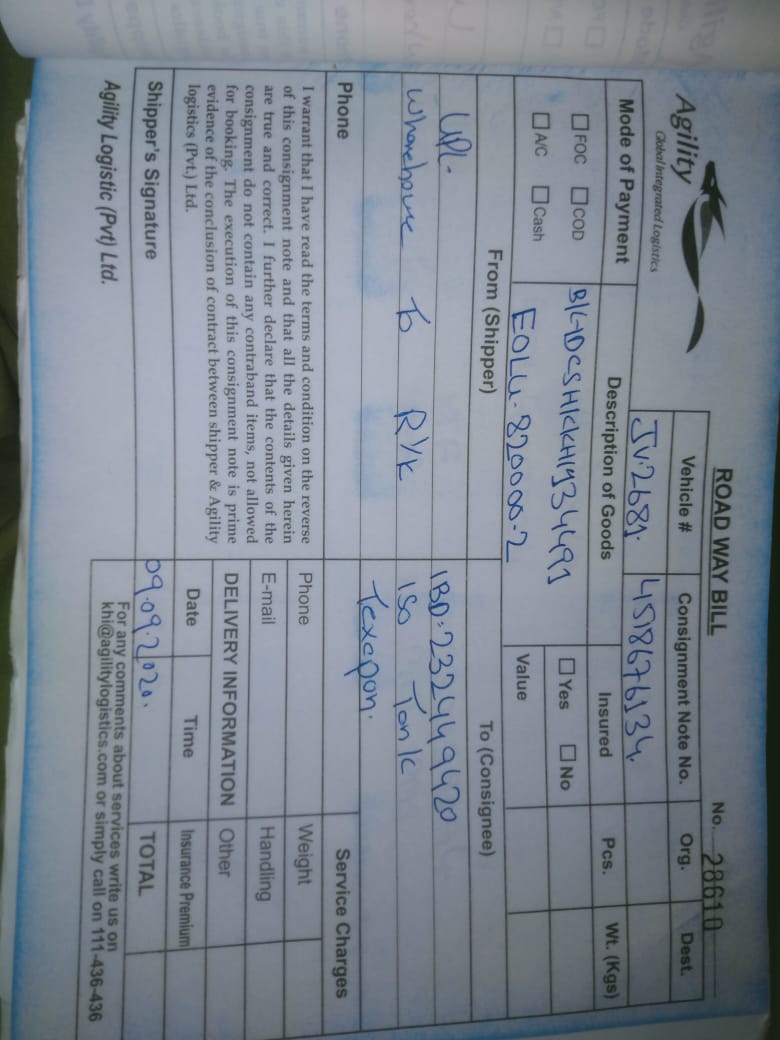 Agility
Global Integrated Logistics
ROAD WAY BILL
No. 28610
Vehicle #
Consignment Note No.
Org.
Dest.
JV-2681.
4518676134.
Mode of Payment
Description of Goods
Insured
Pcs.
Wt. (Kgs)
FOC
COD
Yes
No
A/C
Cash
EOLU-820000-2
Value
From (Shipper)
To (Consignee)
UPL.
IBD:232449420
Wharehouse To R/K
ISO Tank
Texapon.
Phone
Service Charges
I warrant that I have read the terms and condition on the reverse
of this consignment note and that all the details given herein
are true and correct. I further declare that the contents of the
consignment do not contain any contraband items, not allowed
for booking. The execution of this consignment note is prime
evidence of the conclusion of contract between shipper & Agility
logistics (Pvt.) Ltd.
Phone
Weight
E-mail
Handling
DELIVERY INFORMATION
Other
Date
Time
Insurance Premium
Shipper's Signature
09.09.2020.
TOTAL
Agility Logistic (Pvt) Ltd.
For any comments about services write us on
khi@agilitylogistics.com or simply call on 111-436-436